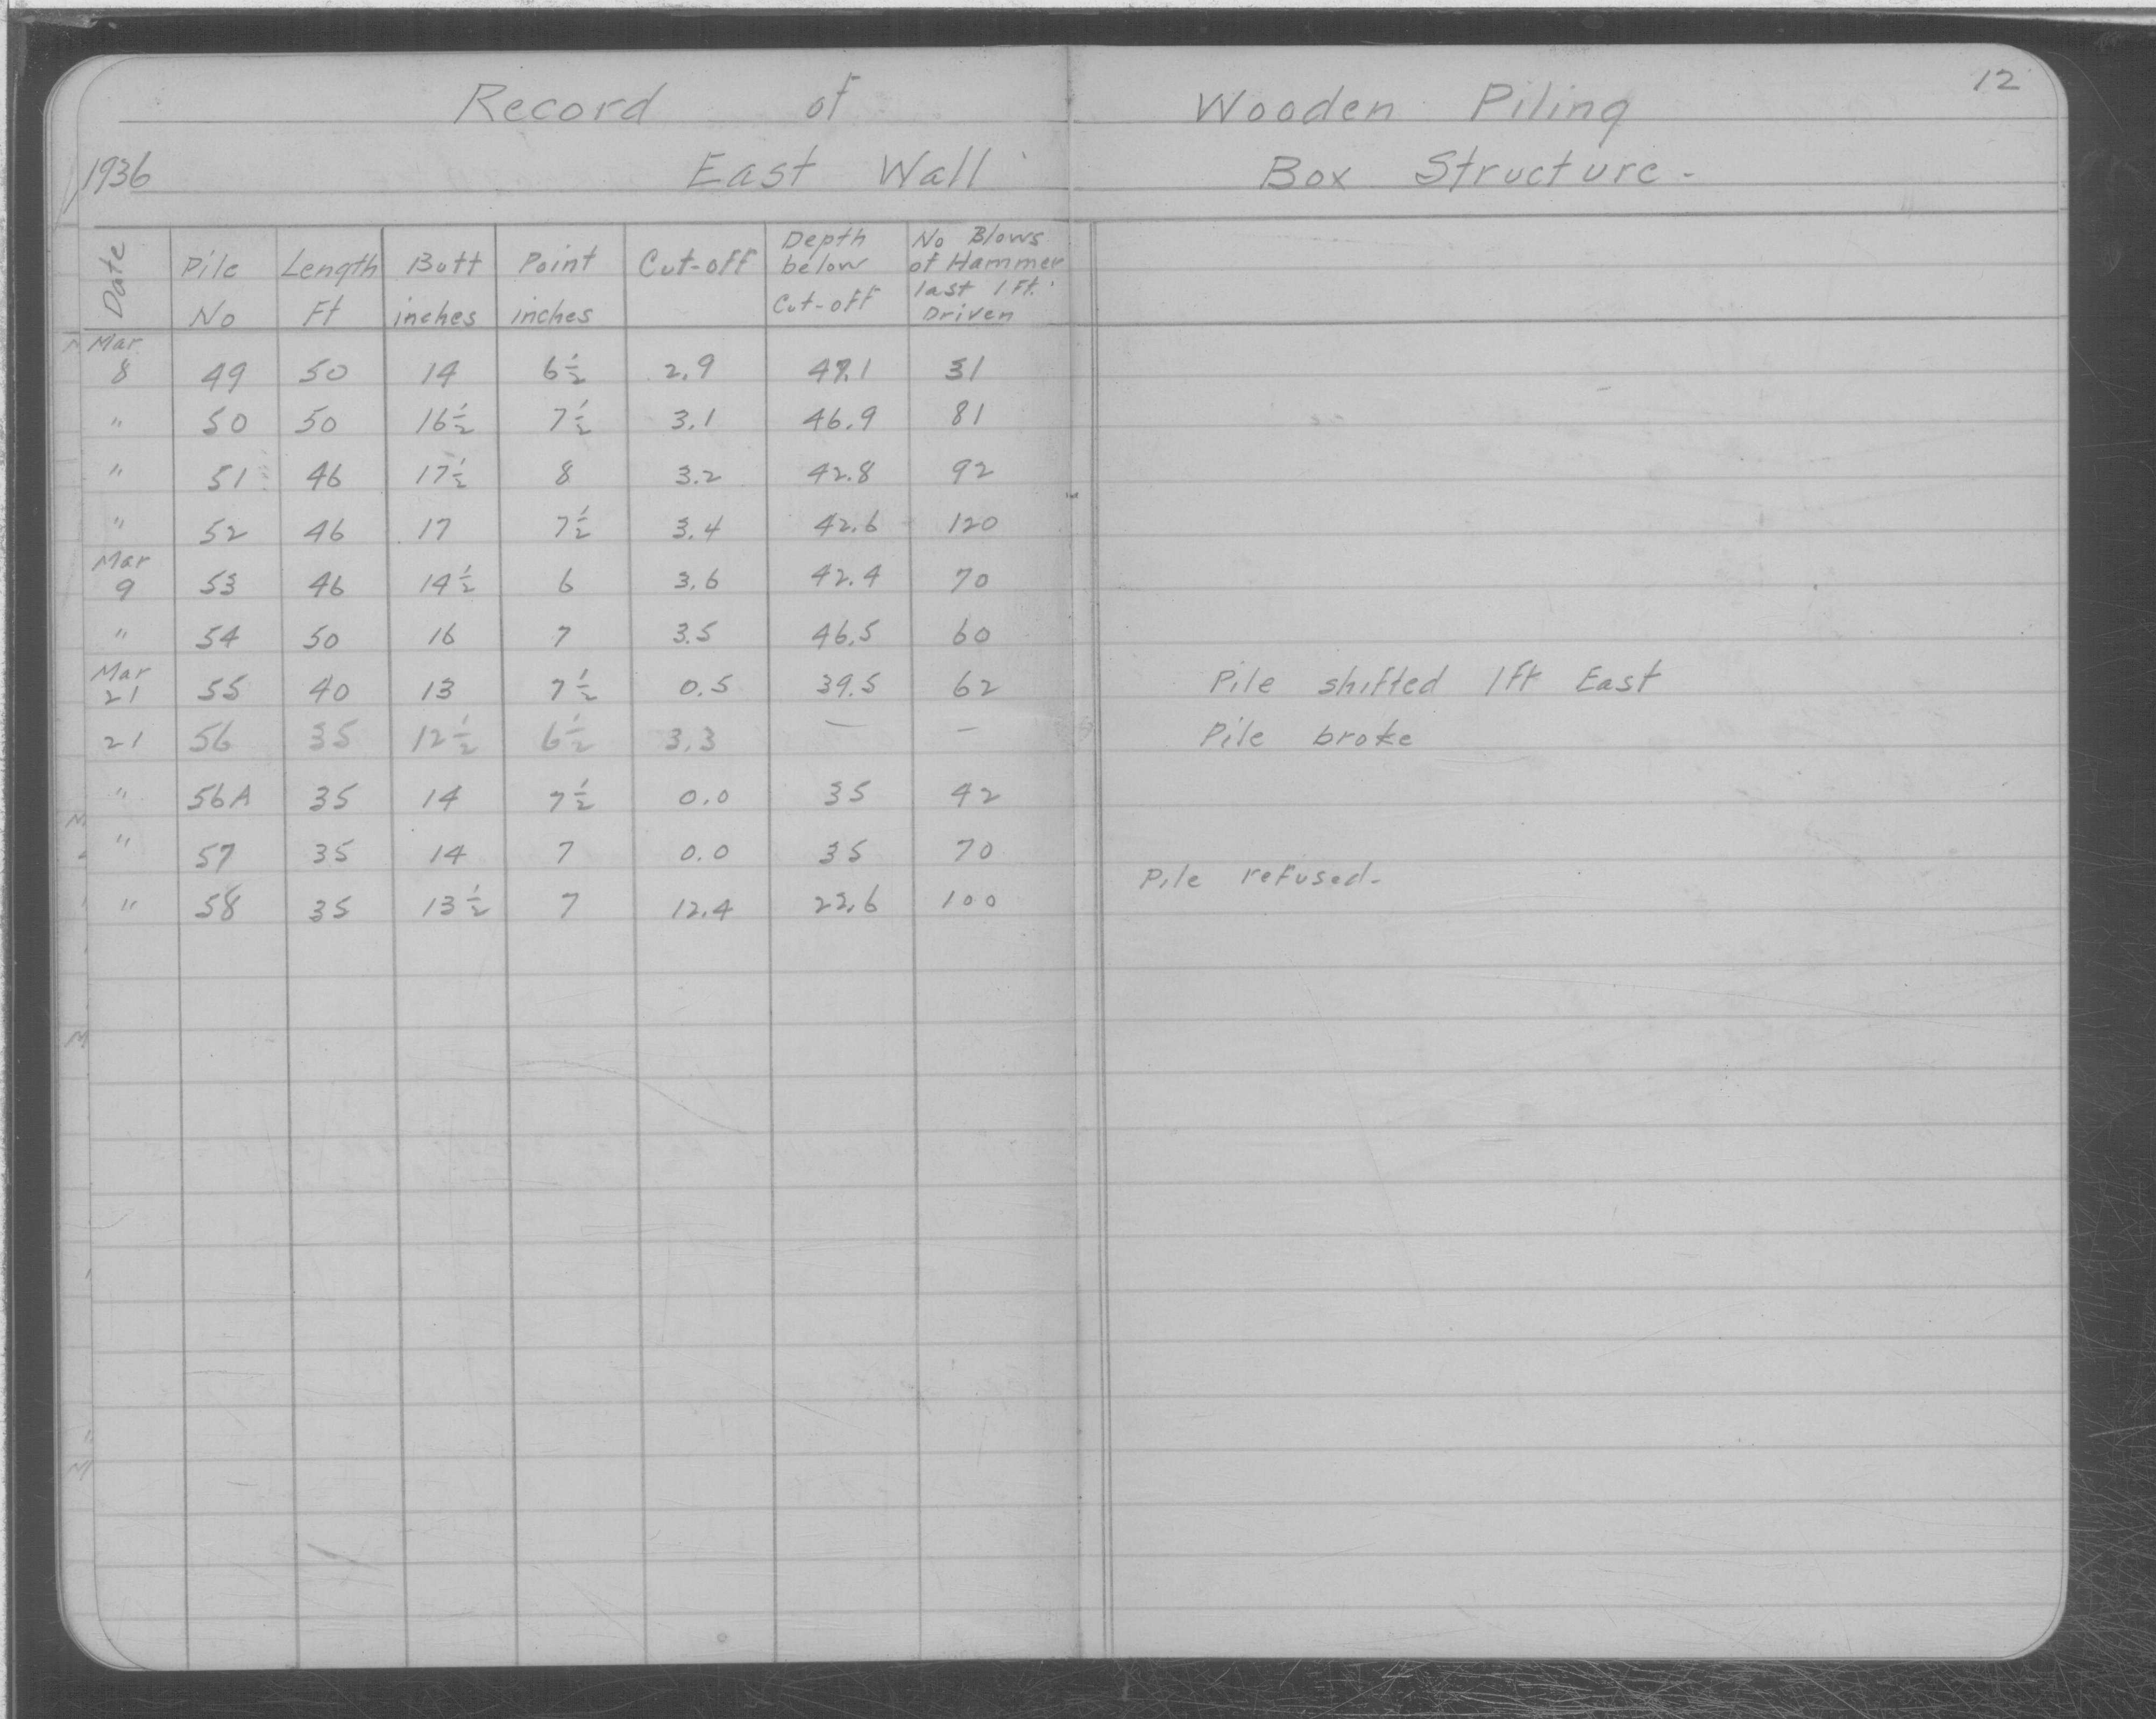 12
Record of Wooden Piling
1936 East Wall Box Structure -
Date Pile No Length Ft Butt inches Point inches Cut-off Depth below Cut-off No Blows of Hammer last 1 Ft. Driven
Mar 8 49 50 14 6½ 2.9 47.1 31
" 50 50 16½ 7½ 3.1 46.9 81
" 51 46 17½ 8 3.2 42.8 92
" 52 46 17 7½ 3.4 42.6 120
Mar 9 53 46 14½ 6 3.6 42.4 70
" 54 50 16 7 3.5 46.5 60
Mar 21 55 40 13 7½ 0.5 39.5 62 Pile shifted 1 ft East
21 56 35 12½ 6½ 3.3 — — Pile broke
" 56A 35 14 7½ 0.0 35 42
" 57 35 14 7 0.0 35 70
" 58 35 13½ 7 12.4 22.6 100 Pile refused-